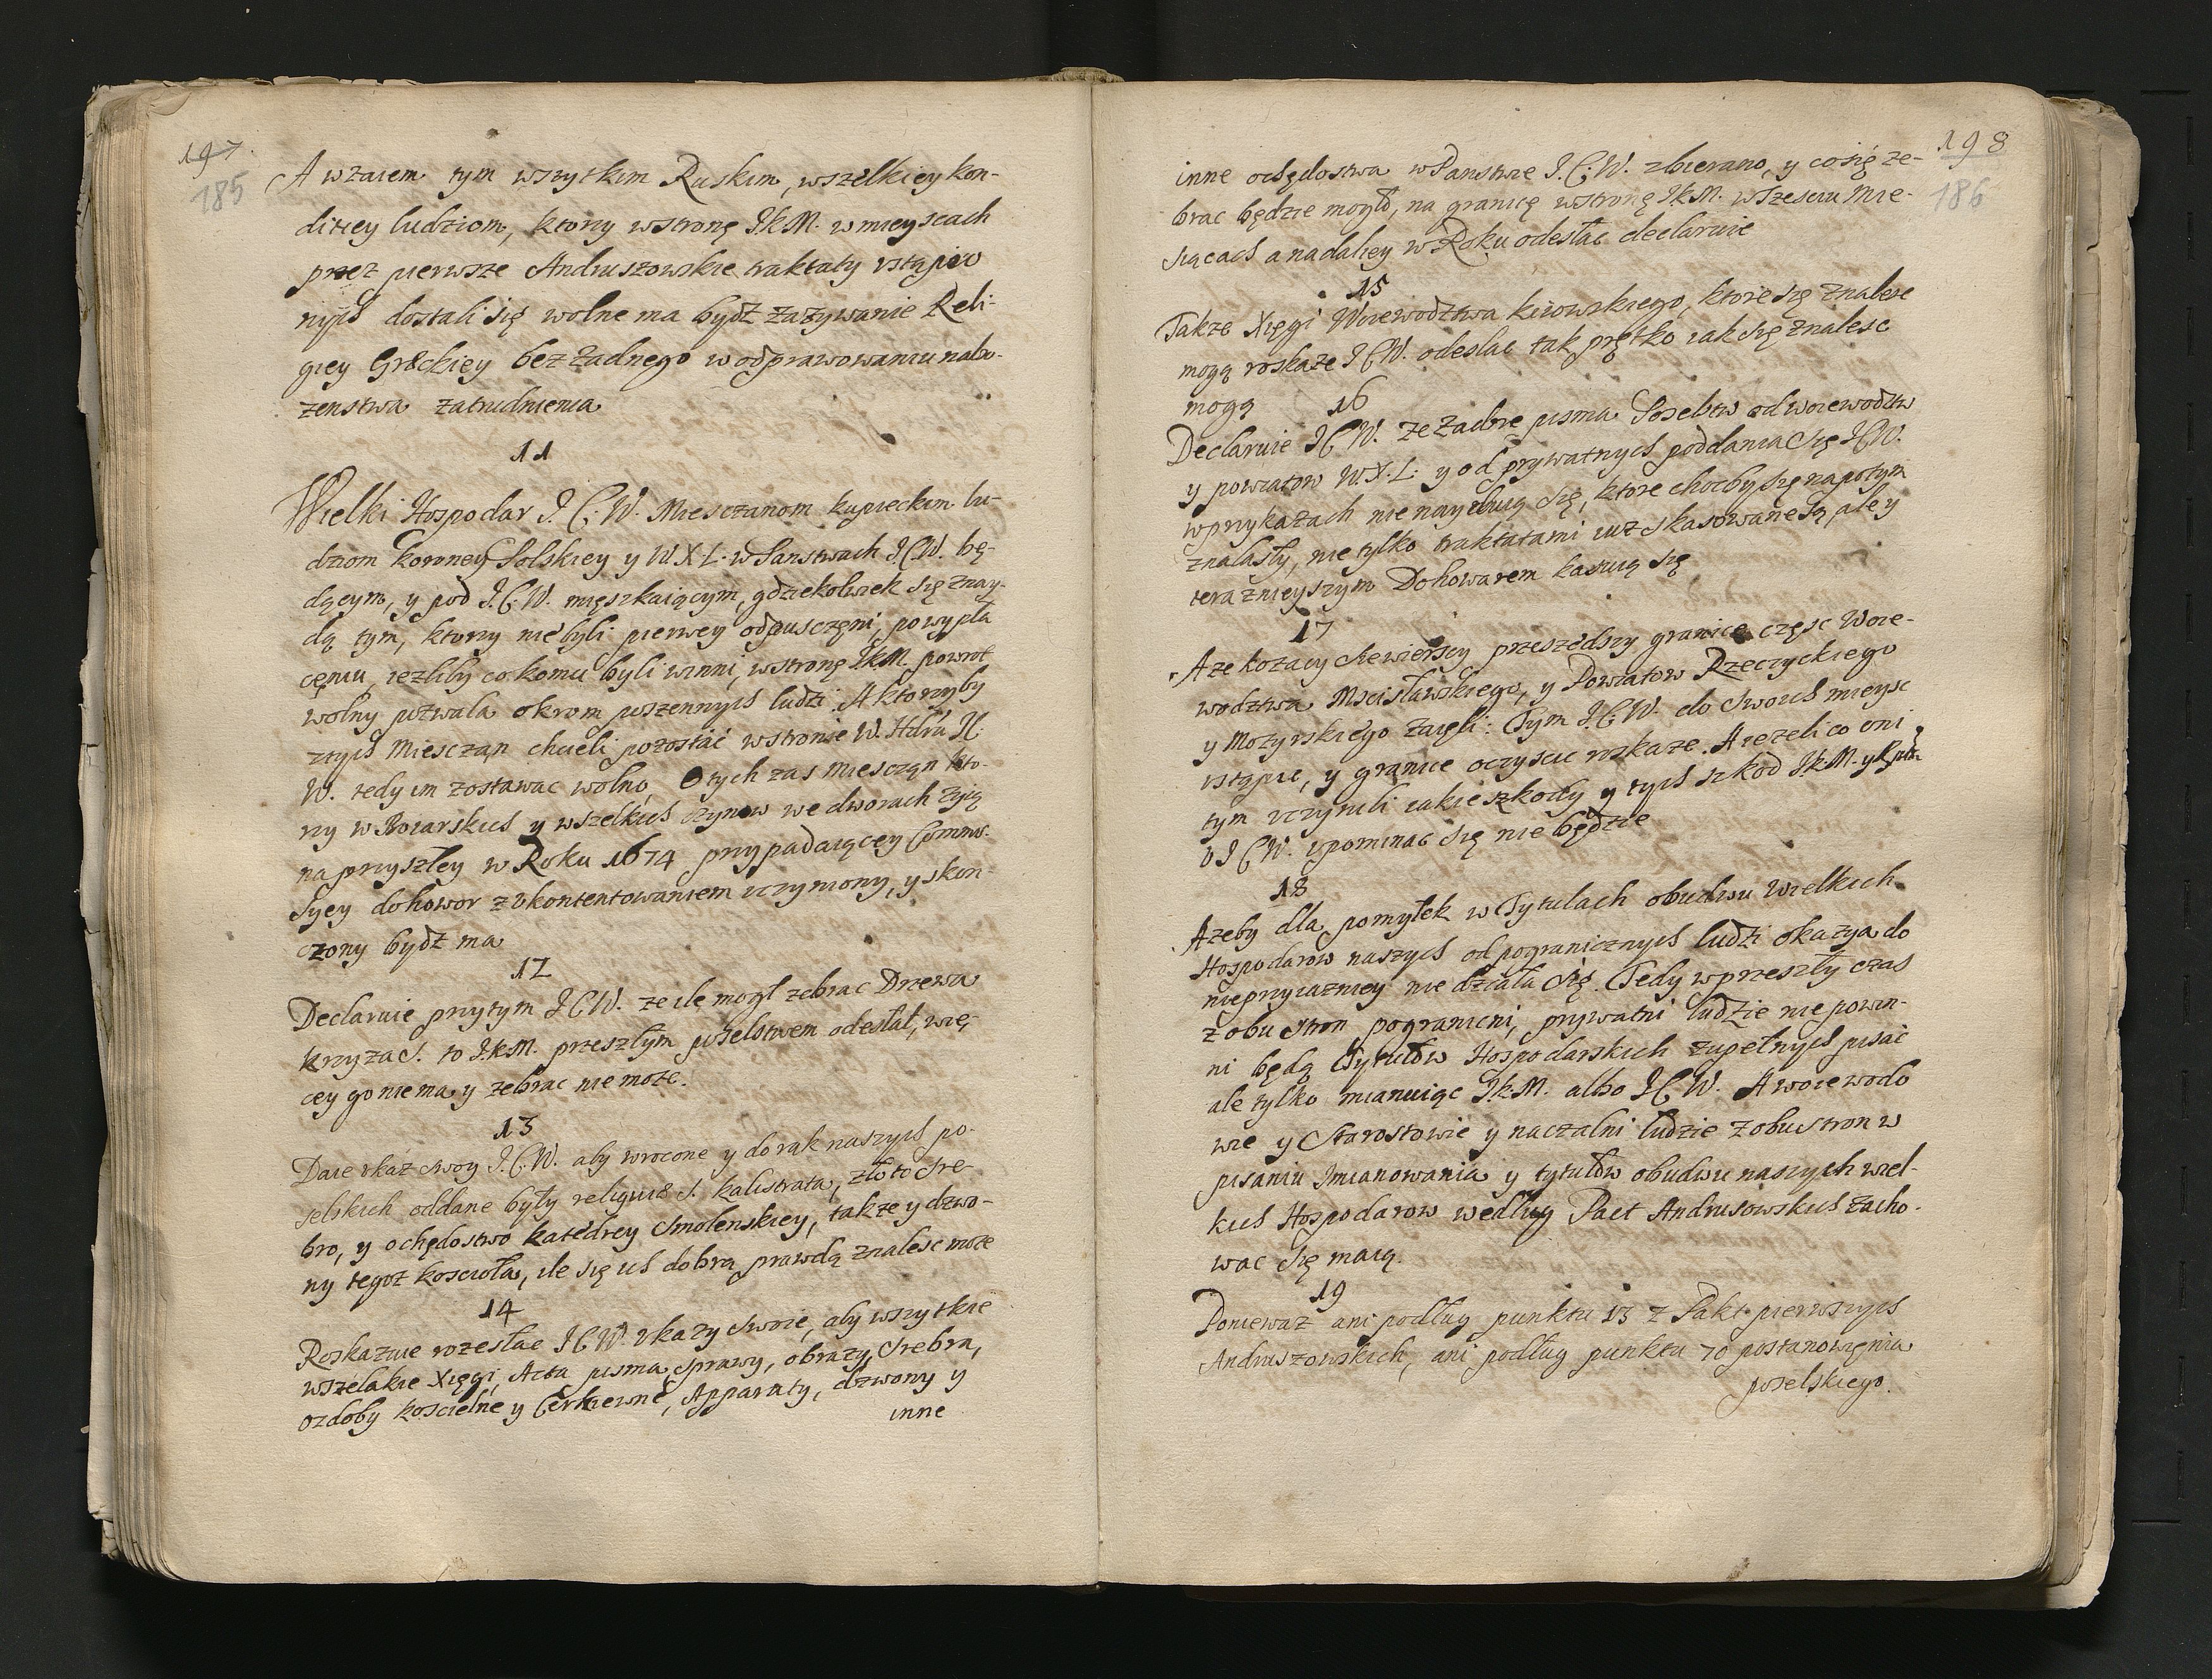 197.
185
A wzaiem tym wszytkim Ruskim, wszelkiey kon-
diciey ludziom, ktorzy wstronę J.k.M. w mieyscach
przez pierwsze Andruszowskie traktaty vstąpio
nych dostali się wolne ma bydź zażywanie Reli-
giey Greckiey bez żadnego w odprawowaniu nabo-
żenstwa zatrudnienia
11
Wielki Hospodar J.C.W. Miesczanom kupieckim lu-
dziom koronney Polskiey y W.X.L. w Panstwach J.C.W. bę-
dącym, y pod J.C.W. mięszkaiącym, gdziekolwiek się znay-
dą tym, ktorzy nie byli pierwey odpusczęni, po wypła
cęniu, iezliby co komu byli winni, wstronę J.k.M. powrot
wolny pozwala okrom poszennych ludzi. A ktorzyby
ztych Miesczan chcieli pozostać wstronie W. Hdra J.C.
W. tedy im zostawac wolno, O tych zas Miesczan kto-
rzy w Boiarskich y wszelkich czynow we dworach żyią
na przyszłey w Roku 1674 przypadaiącey Commis-
syey dohowor z vkontentowaniem vczyniony, y skon-
czony bydź ma
12
Declaruie przytym J.C.W. ze ile mogł zebrac Drzewa
krzyża S. to J.k.M. przeszłym poselstwem odesłał, wię-
cey go nie ma y zebrac nie może.
13
Daie vkaz swoy J.C.W. aby wrocone y do rąk naszych po-
selskich oddane były religuie S. kalistrata, złoto sre-
bro, y ochędostwo katedrey Smolenskiey, takze y dzwo-
ny tegoż koscioła, ile się ich dobrą prawdą znalesc może
14
Roskazuie rozesłac J.C.W. vkazy swoie, aby wszytkie
wszelakie Xięgi, Acta pisma, sprawy, obrazy, srebra,
ozdoby koscielne y Cerkiewne, Apparaty, dzwony y
inne
198
186
inne ochędostwa w Panstwie J.C.W. zbierano, y co się ze-
brac będzie mogło, na granicę wstronę J.k.M. w szesciu Mie-
siącach a nadaley w Roku odesłac declaruie
15
Takze Xięgi Woiewodztwa kiiowskiego, ktore się znalesc
mogą roskaze J.C.W. odesłac tak prętko iak się znalesc
mogą
16
Declaruie J.C.W. ze żadne pisma Poselstw od woiewodztw
y powiatow W.X.L. y od prywatnych poddania się J.C.W.
w prykazach nie nayduią się, ktore chocby się napotym
znalasły, nie tylko traktatami iuz skasowane są, ale y
teraznieyszym Dohoworem kasuią się
17
A ze kozacy Siewierscy przeszedszy granice częsc Woie-
wodztwa Mscisławskiego, y Powiatow Rzeczyckiego
y Mozyrskiego zaięli: Tym J.C.W. do swoich mieysc
vstąpic, y granice oczyscic roskaze. A iezeli co oni
tym vczynili iakie szkody y tych szkod J.k.M. y Rptа
v J.C.W. vpominac się nie będzie
18
Azeby dla pomyłek w Tytulach obudwu Wielkich
Hospodarow naszych od pogranicznych ludzi okazya do
nieprzyiazniey nie działa się. Tedy w przeszły czas
z obu stron pograniczni, prywatni ludzie nie powin-
ni będą Tytułow Hospodarskich zupełnych pisać
ale tylko mianuiąc J.k.M. albo J.C.W. A woiewodo
wie y Starostowie y naczalni ludzie z obu stron w
pisaniu Imianowania y tytułow obudwu naszych wiel-
kich Hospodarow według Pact Andrusowskich zacho-
wac się maią.
19
Poniewaz ani podług punktu 13 z Pakt pierwszych
Andruszowskich, ani podług punktu 10 postanowięnia
poselskiego.